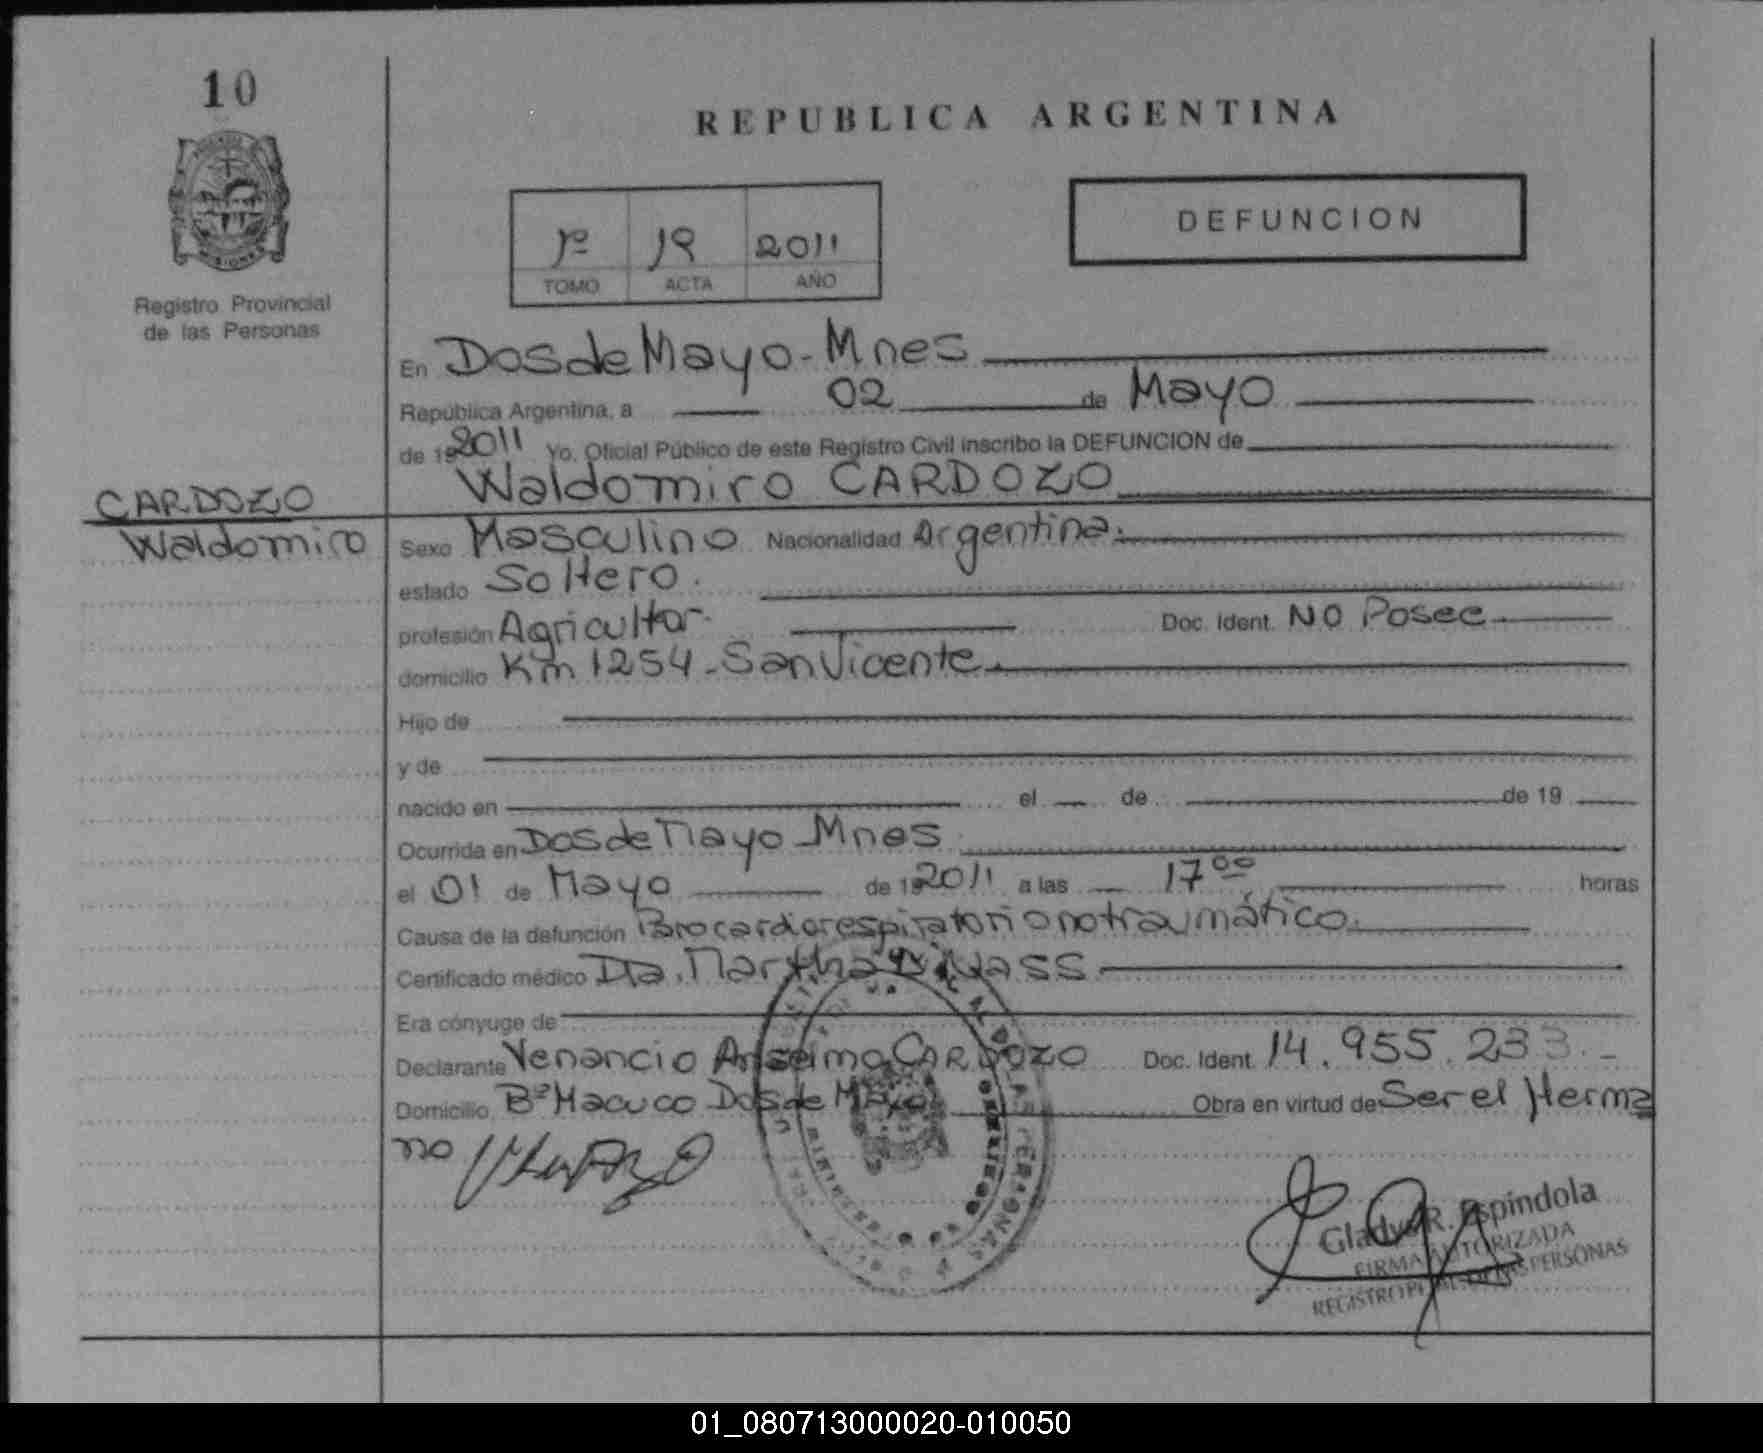 10
REPUBLICA ARGENTINA
DEFUNCION
1º 19 2011
TOMO ACTA AÑO
Registro Provincial
de las Personas
En Dos de Mayo - Mnes
República Argentina, a 02 de Mayo
de 19 2011 Yo, Oficial Público de este Registro Civil inscribo la DEFUNCION de
Waldomiro CARDOZO
CARDOZO
Waldomiro
Sexo Masculino Nacionalidad Argentina.
estado Soltero.
profesión Agricultor Doc. Ident. NO Posee
domicilio Km 1254 - San Vicente.
Hijo de
y de
nacido en el de de 19
Ocurrida en Dos de Mayo Mnes
el 01 de Mayo de 19 2011 a las 17⁰⁰ horas
Causa de la defunción cardiorespiratorio no traumático.
Certificado médico Dra. Martha
Era cónyuge de
Declarante Venancio Anselmo CARDOZO Doc. Ident. 14.955.233.-
Domicilio Bº Macuco Dos de Mayo Obra en virtud de Ser el Herma
no
Gladys R. Espindola
FIRMA AUTORIZADA
REGISTRO DE LAS PERSONAS
01_080713000020-010050